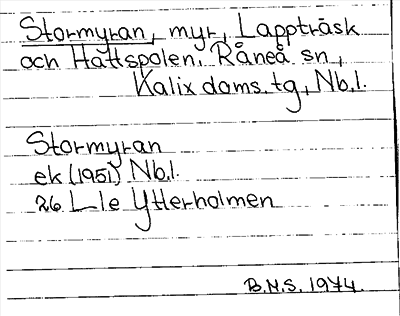 Stormyran, myr, Lappträsk
och Hattspolen. Råneå sn,
Kalix doms. tg, Nb.l.
Stormyran
ek (1951) Nb.l.
26 L-le Ytterholmen
B.N.S. 1974.